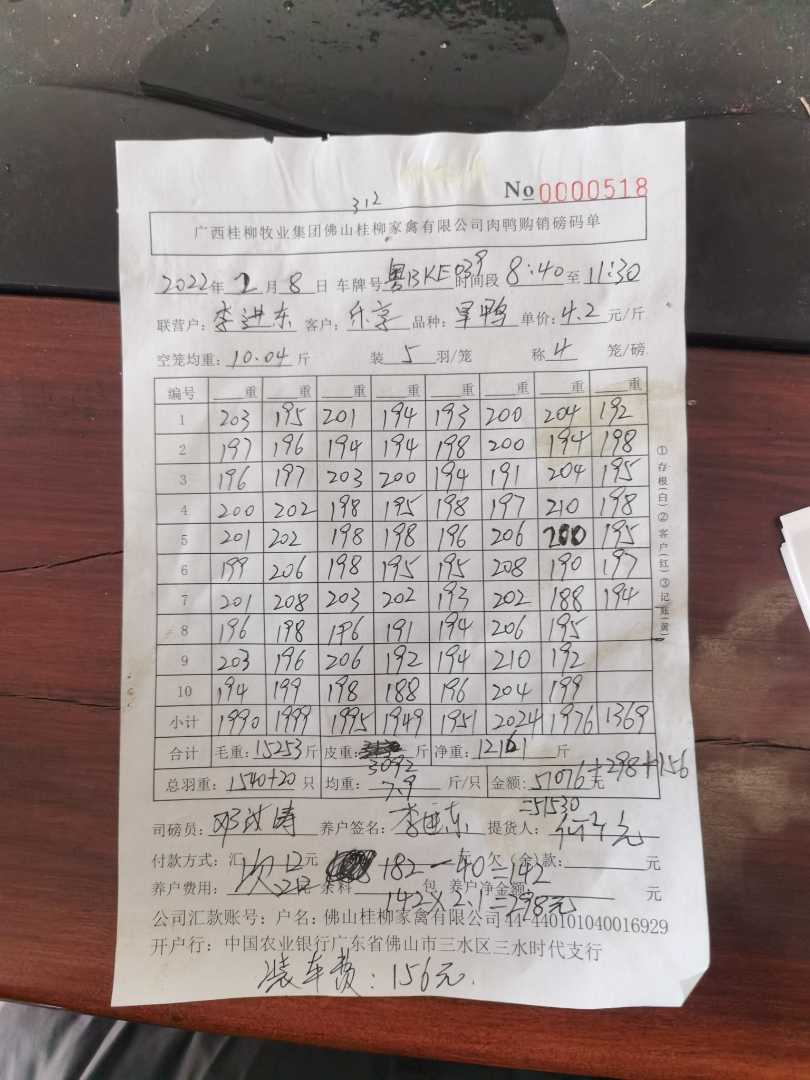 312
No 0000518
广西桂柳牧业集团佛山桂柳家禽有限公司肉鸭购销磅码单
2022年2月8日 车牌号 粤BKE039 时间段 8:40 至 11:30
联营户：李进东 客户：乐享 品种：军鸭 单价：4.2 元/斤
空笼均重：10.04 斤 装 5 羽/笼 称 4 笼/磅
编号 重 重 重 重 重 重 重 重
1 203 195 201 194 193 200 204 192
2 197 196 194 194 198 200 194 198
3 196 197 203 200 194 191 204 195
4 200 202 198 195 198 197 210 198
5 201 202 198 198 196 206 200 195
6 199 206 198 195 195 208 190 197
7 201 208 203 202 193 202 188 194
8 196 198 196 191 194 206 195
9 203 196 206 192 194 210 192
10 194 199 198 188 196 204 199
小计 1990 1999 1995 1949 1951 2024 1976 1369
合计 毛重：15253 斤 皮重：3092 斤 净重：12161 斤
总羽重：1540+20 只 均重：7.9 斤/只 金额：51076 元 +298+156
=51530
司磅员：邓 涛 养户签名：李进东 提货人：
付款方式：汇 元 +82-40=142 欠（余）款： 元
养户费用： 元 余料 包 养户净金额： 元
142×2.1=298元
公司汇款账号：户名：佛山桂柳家禽有限公司44-440101040016929
开户行：中国农业银行广东省佛山市三水区三水时代支行
装车费：156元.
①存根(白)②客户(红)③记账(黄)